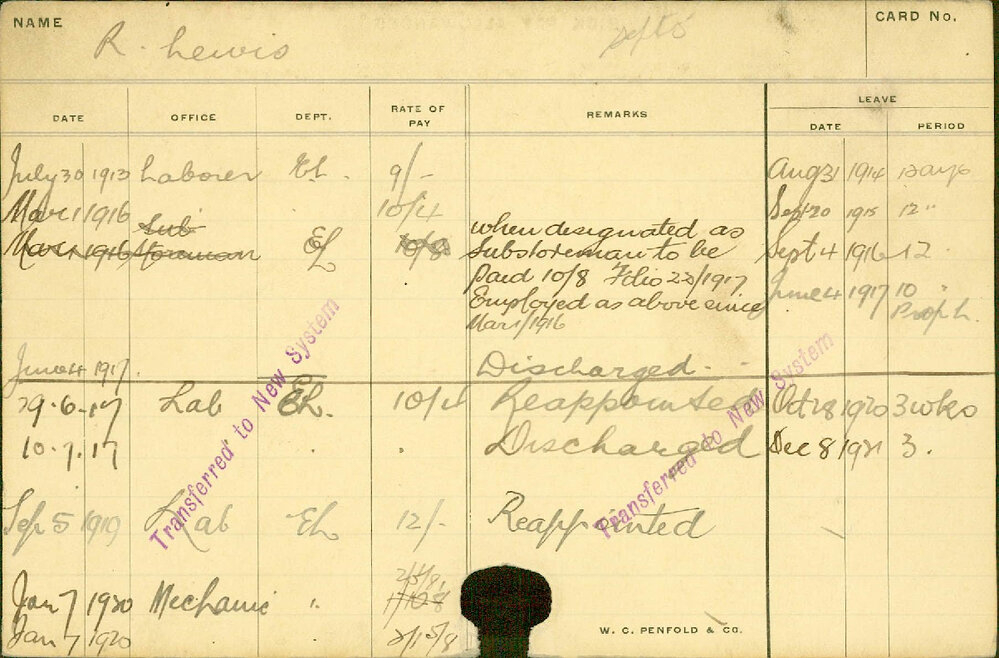 NAME R. Lewis CARD No.
LEAVE
DATE OFFICE DEPT. RATE OF PAY REMARKS DATE PERIOD
July 30 1913 Laborer El. 9/- Aug 31 1914 12 days
Mar 1 1916 10/4 Sept 20 1915 12 "
Mar 1 1916 Sub Foreman El 10/8 when designated as Sept 4 1916 12
Substoreman to be
Paid 10/8 Filio 23/1917 June 4 1917 10 "
Employed as above since Prop L.
Mar 1/1916
June 4 1917. Discharged.
29.6.17 Lab El. 10/4 Reappointed Oct 28 1920 3 wks
10.7.17 " Discharged Dec 8 1921 3.
Sep 5 1919 Lab El 12/- Reappointed
Jan 7 1920 Mechanic "
Jan 7 1920 2/15/8
Transferred to New System
Transferred to New System
W. C. PENFOLD & CO.